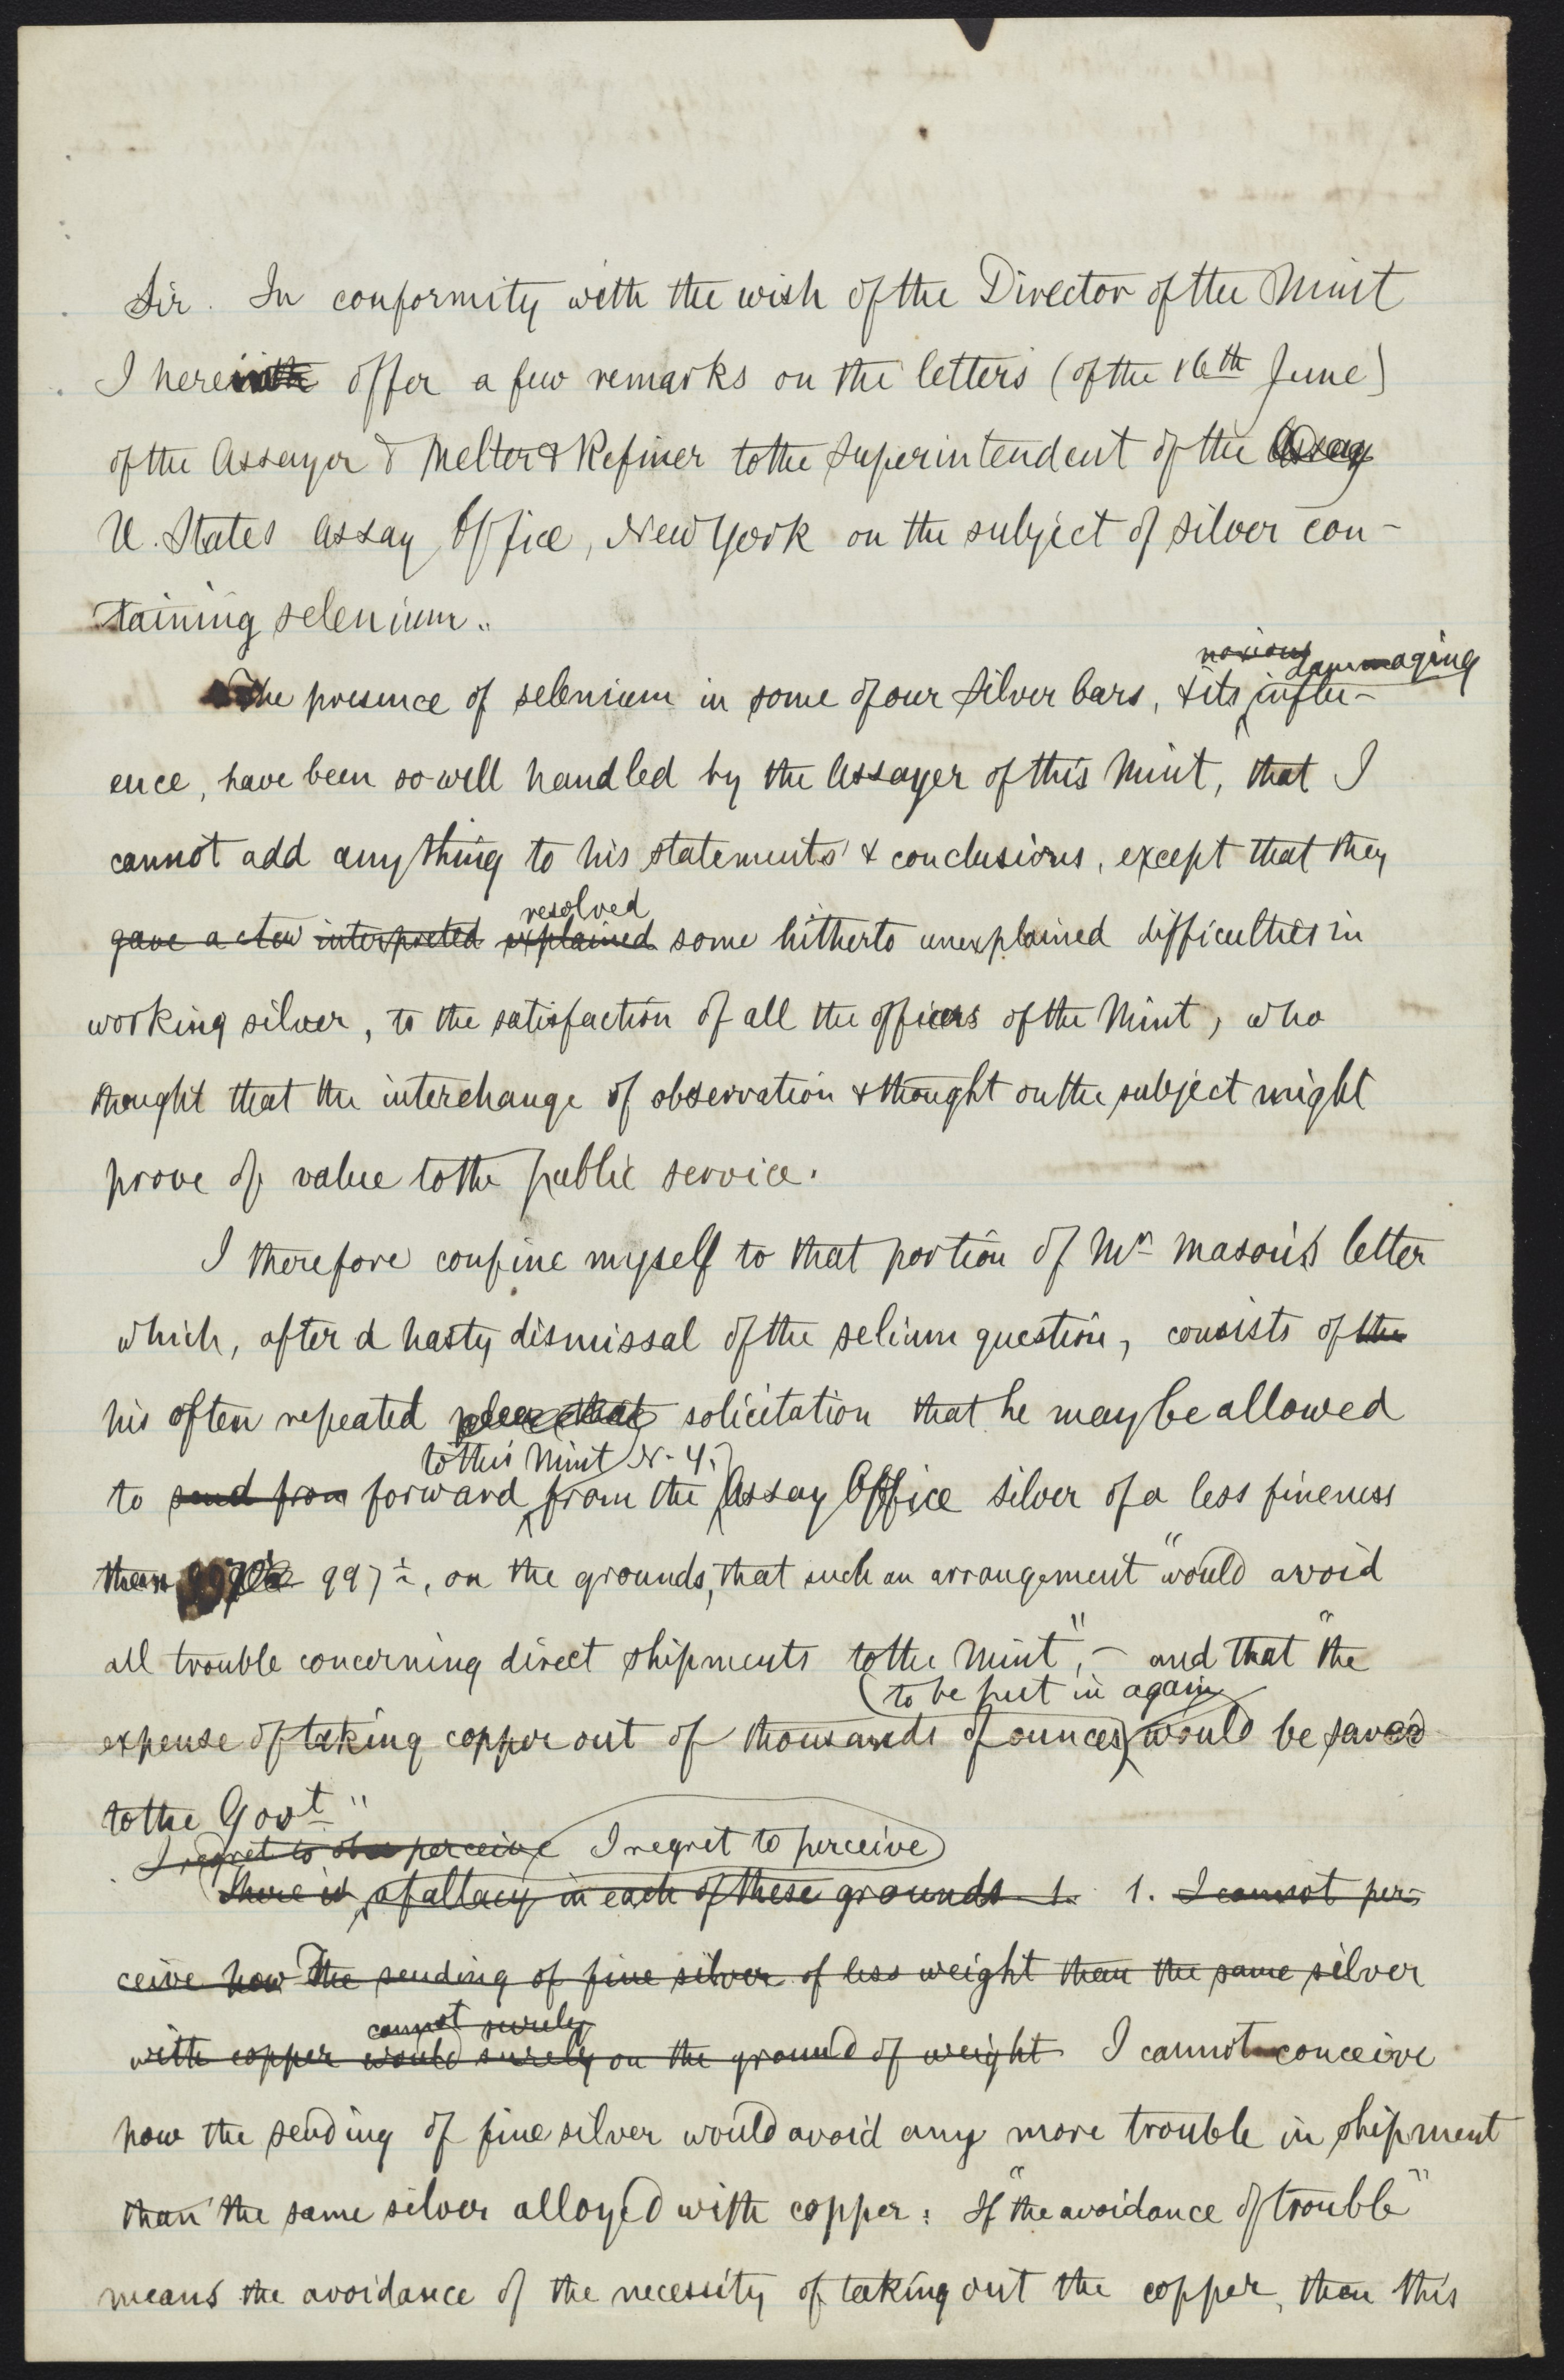 Sir. In conformity with the wish of the Director of the Mint
I herewith offer a few remarks on the letters (of the 16th June)
of the Assayer & Melter & Refiner to the Superintendent of the Assay
U. States Assay Office, New York on the subject of silver con-
taining selenium.
noxious dammaging
The presence of selenium in some of our silver bars, & its influ-
ence, have been so well handled by the Assayer of this Mint, that I
cannot add any thing to his statements & conclusions, except that they
resolved
gave a clew interpreted explained some hitherto unexplained difficulties in
working silver, to the satisfaction of all the officers of the Mint, who
thought that the interchange of observation & thought on the subject might
prove of value to the public service.
I therefore confine myself to that portion of Mr Mason's letter
which, after a hasty dismissal of the selium question, consists of the
his often repeated plea that solicitation that he may be allowed
to this Mint N.Y.
to send from forward from the Assay Office silver of a less fineness
than 997½ 997½, on the grounds, that such an arrangement "would avoid
all trouble concerning direct shipments to the Mint", - and that "the
(to be put in again
expense of taking copper out of thousands of ounces) would be saved
to the Govt"
I regret to perceive I regret to perceive
There is a fallacy in each of these grounds. 1. 1. I cannot per-
ceive how The sending of fine silver of less weight than the same silver
cannot surely
with copper would surely on the ground of weight I cannot conceive
how the sending of fine silver would avoid any more trouble in shipment
than the same silver alloyed with copper: If "the avoidance of trouble"
means the avoidance of the necessity of taking out the copper, then this